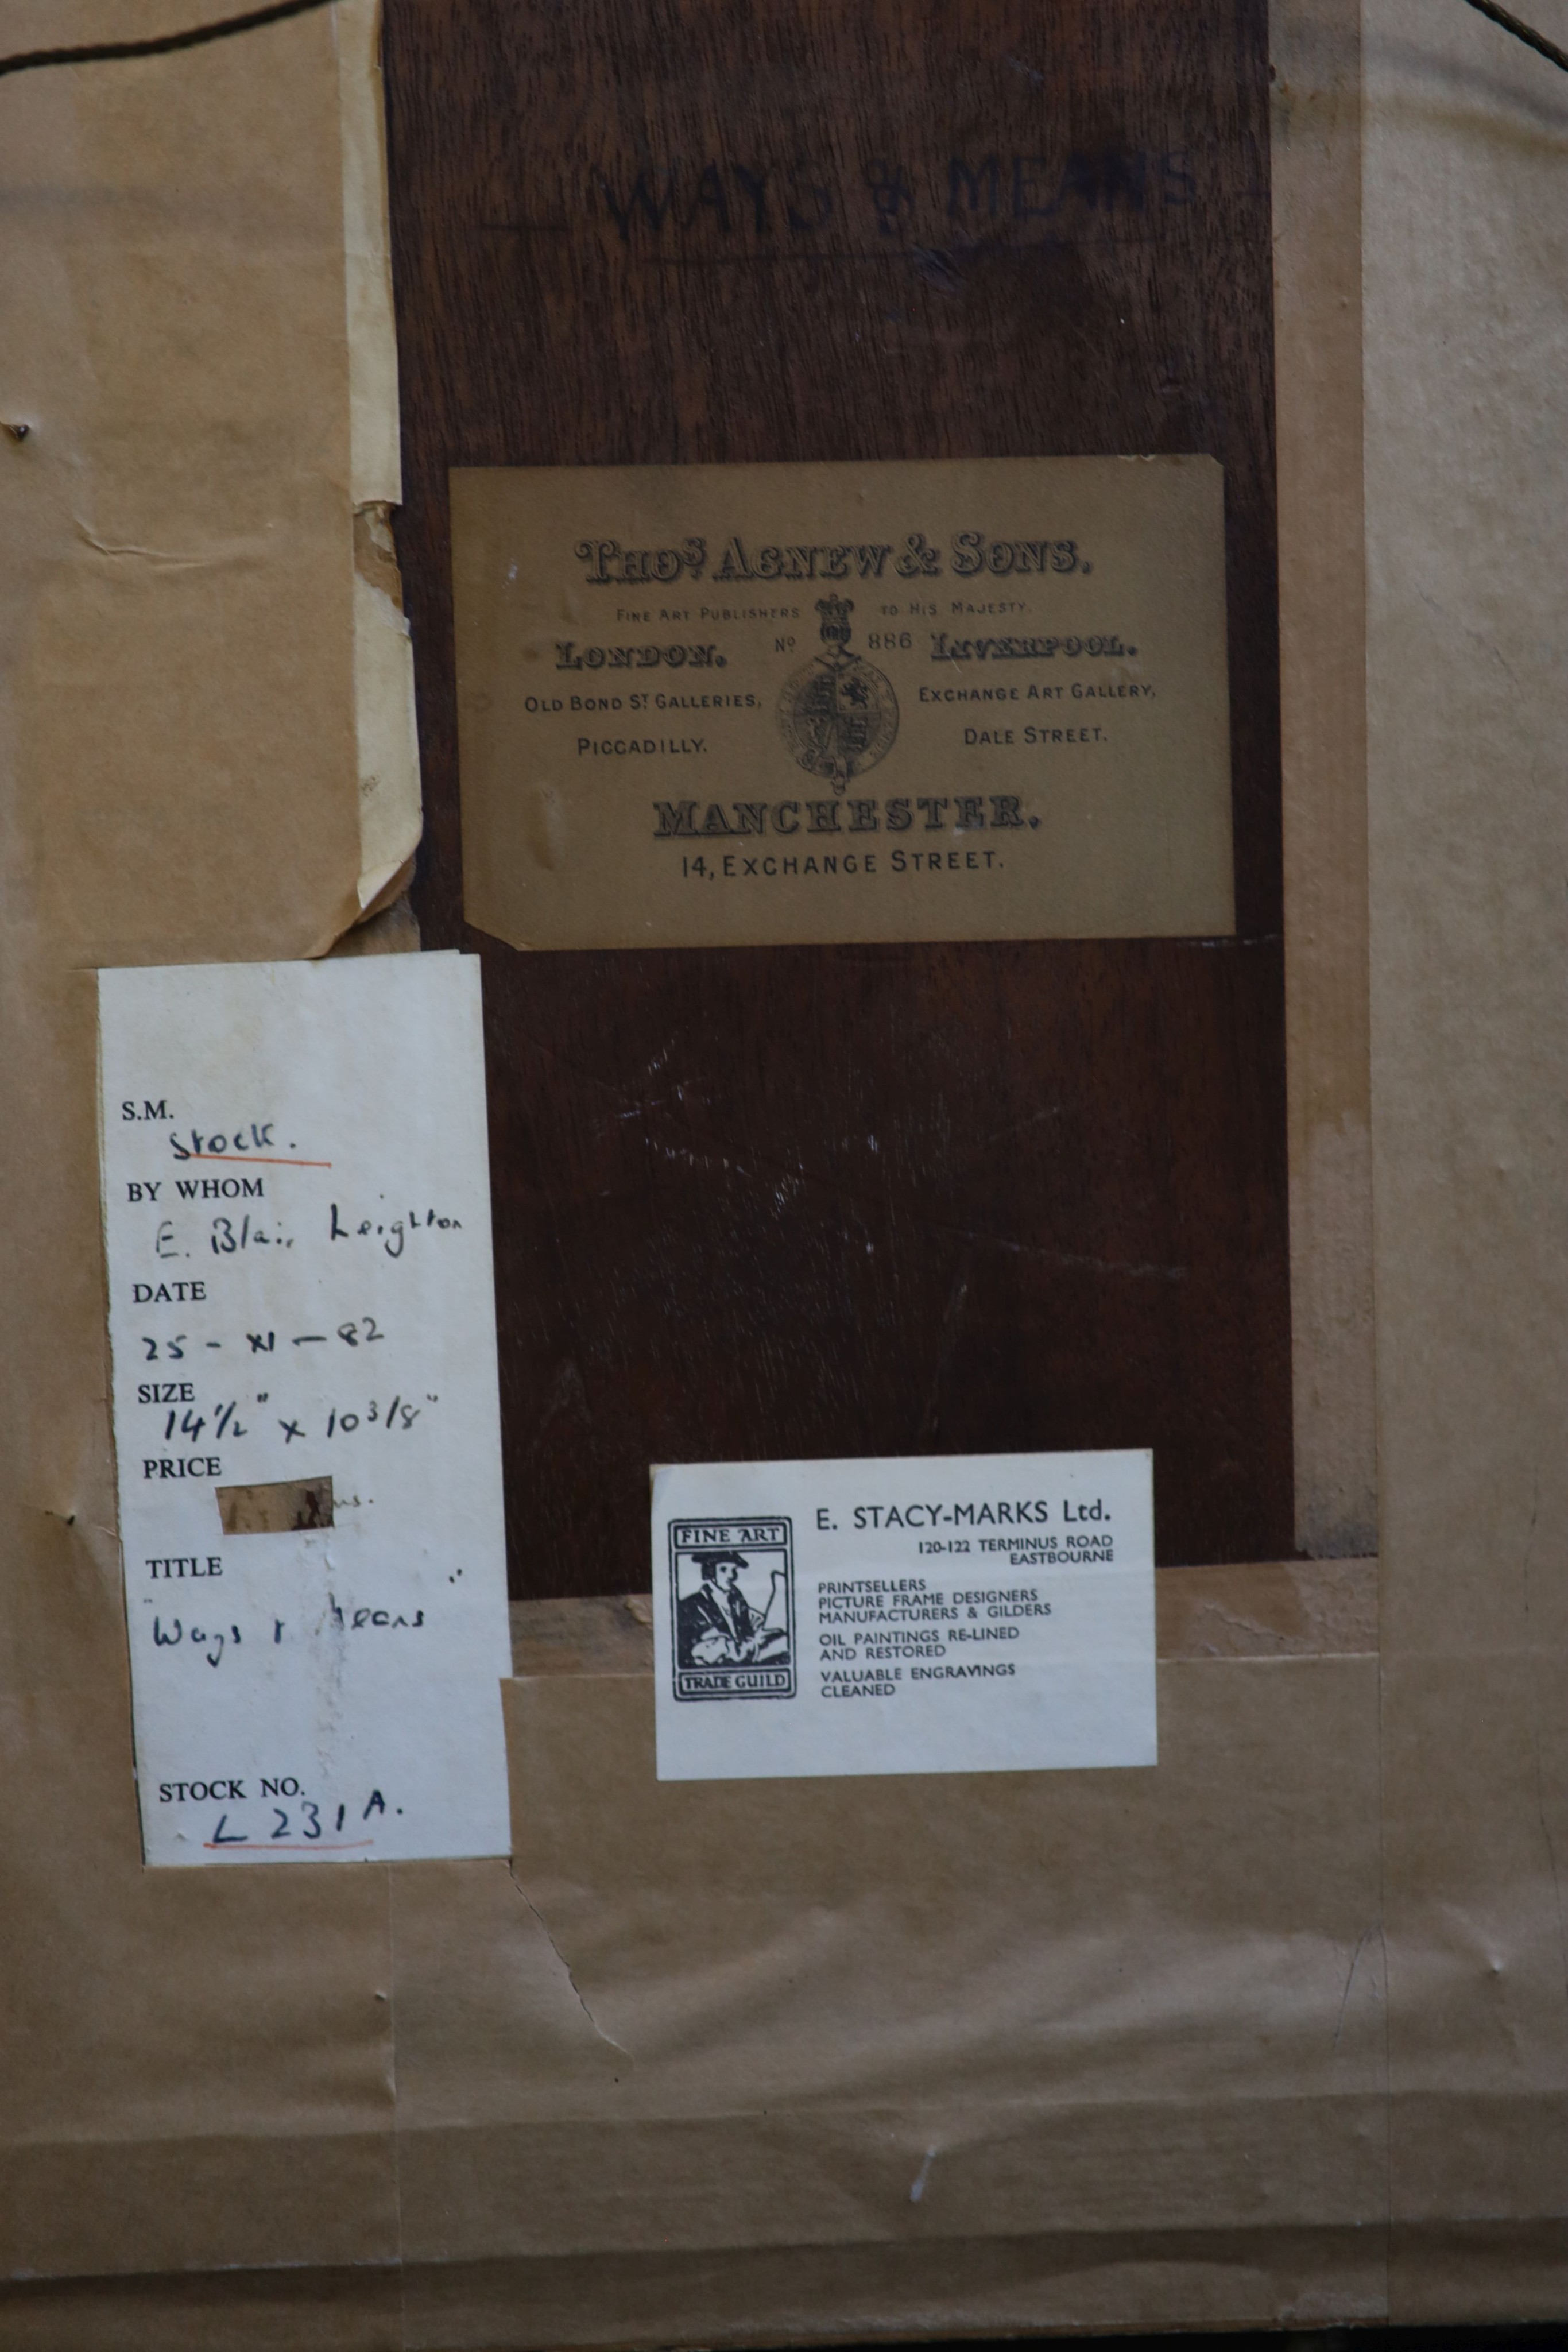 WAYS & MEANS
THOS AGNEW & SONS.
FINE ART PUBLISHERS TO HIS MAJESTY.
LONDON. No 886 LIVERPOOL.
OLD BOND ST GALLERIES, EXCHANGE ART GALLERY,
PICCADILLY. DALE STREET.
MANCHESTER.
14, EXCHANGE STREET.
S.M.
Stock.
BY WHOM
E. Blair Leighton
DATE
25 - XI - 82
SIZE
14 1/2" x 10 3/8"
PRICE
TITLE
"Ways & Means"
STOCK NO.
L 231 A.
FINE ART
TRADE GUILD
E. STACY-MARKS Ltd.
120-122 TERMINUS ROAD
EASTBOURNE
PRINTSELLERS
PICTURE FRAME DESIGNERS
MANUFACTURERS & GILDERS
OIL PAINTINGS RE-LINED
AND RESTORED
VALUABLE ENGRAVINGS
CLEANED